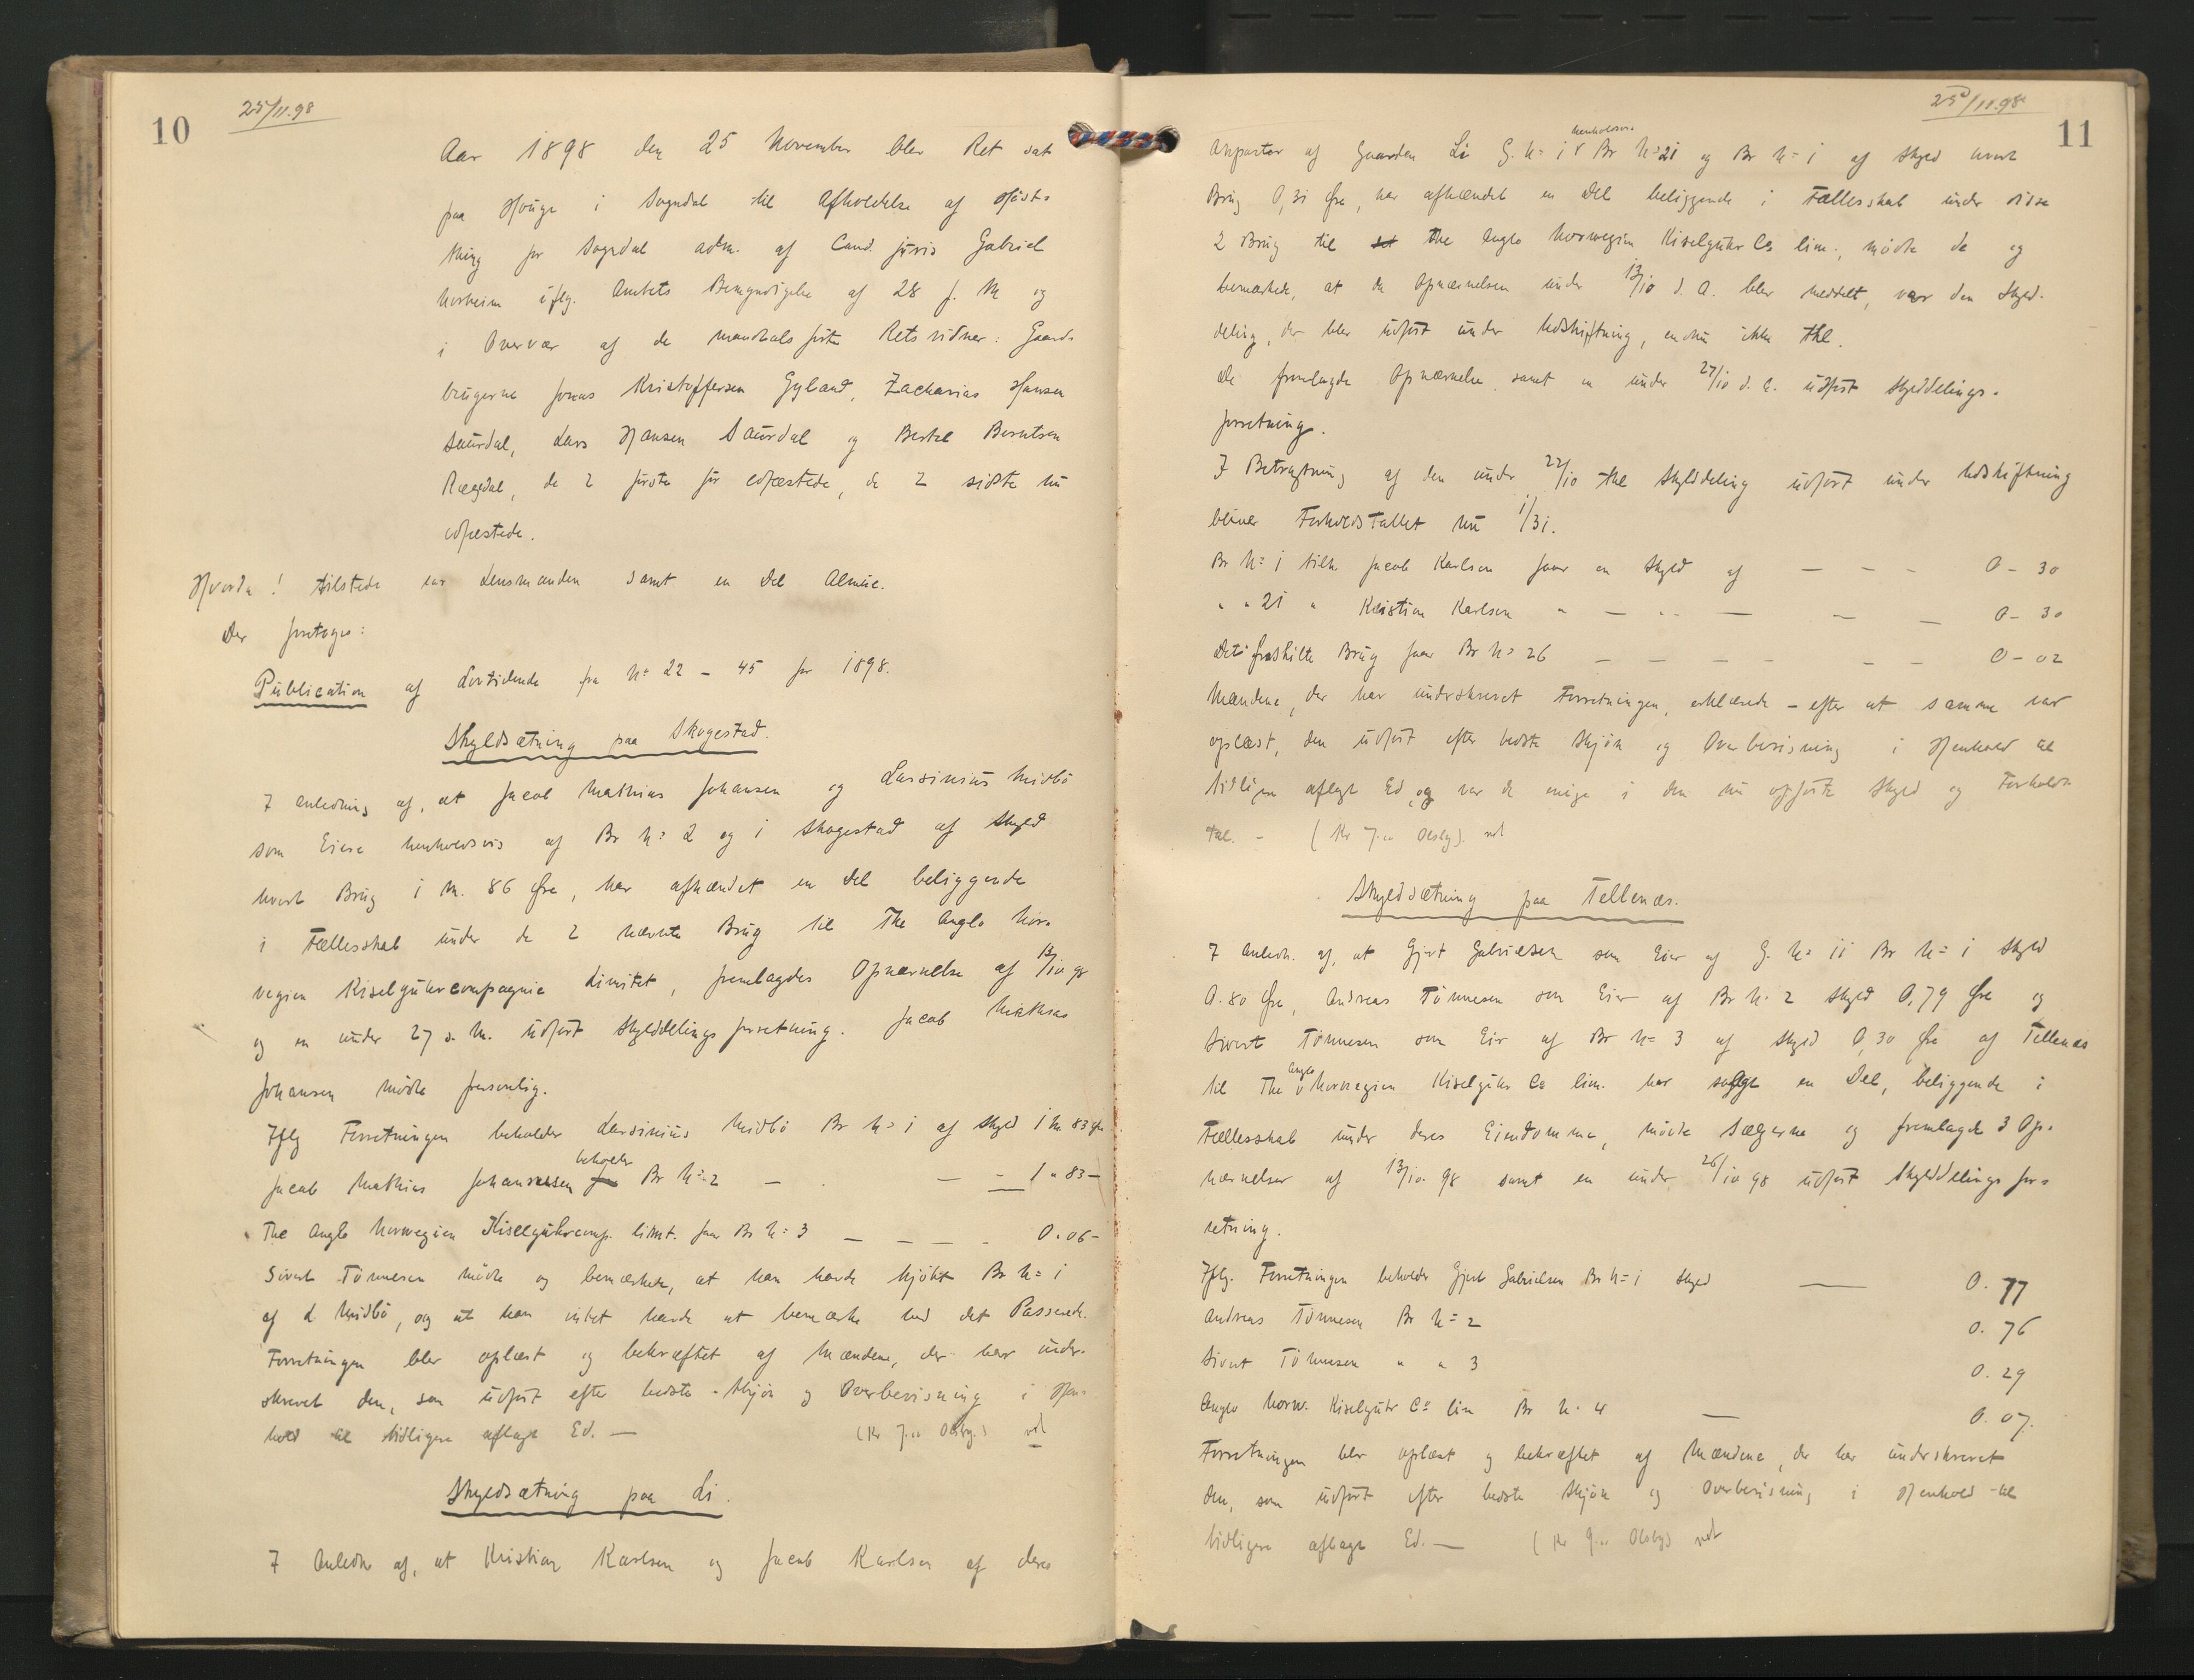 10
25/11.98
Aar 1898 den 25 November blev Ret sat
paa Houge i Sogndal til Afholdelse af Høst-
thing for Sogndal adm. af Cand. juris Gabriel
iflg. Amtets Bemyndigelse af 28 f. M og
i Overvær af de mandtalsførte Retsvidner: Gaard-
brugerne Jonas Kristoffersen Gyland, Zacharias Hansen
Saurdal, Lars Hansen Saurdal og Bertel Berntsen
Rægdal, de 2 første før edfæstede, de 2 sidste nu
edfæstede.
Hvorda! tilstede var Lensmanden samt en Del Almue.
Der foretoges:
Publication af Lovtidende fra No 22 - 45 for 1898.
Skyldsætning paa Skogestad.
I Anledning af, at Jacob Mathias Johansen og Lassinius Midbö
som Eiere henholdsvis af Br No 2 og 1 Skogestad af Skyld
hvert Brug 1 M. 86 Øre, har afhændet en Del beliggende
i Fællesskab under de 2 nævnte Brug til The Anglo Nor-
wegian Kiselguhrcompagnie Limitet, fremlagdes Opnævnelse af 13/10 98
og en under 27 s. M. udført Skylddelingsforretning. Jacob Mathias
Johansen mødte personlig.
Iflg Forretningen beholder Lassinius Midbö Br No 1 af Skyld 1 M 83 Øre
Jacob Mathias Johannesen beholder Br No 2 — — — 1 " 83 —
The Anglo Norwegian Kiselguhrcomp. limt. faar Br No 3 — — — - 0.06 -
Sivert Tönnesen mødte og bemærkede, at han havde kjöbt Br No 1
af L Midbö, og at han intet havde at bemærke ved det Passerede.
Forretningen blev oplæst og bekræftet af Mændene, der har under-
skrevet den, som udført efter bedste Skjøn og Overbevisning i Hen-
hold til tidligere aflagt Ed. — (Kr 7.00 )
Skyldsætning paa Li.
I Anledn af, at Kristian Karlsen og Jacob Karlsen af deres
25/11.98
11
Anparter af Gaarden Li G. No 18 henholdsvis Br No 21 og Br No 1 af Skyld hvert
Brug 0,31 Øre, har afhændet en Del beliggende i Fællesskab under disse
2 Brug til The Anglo Norwegian Kiselguhr Co lim., mødte de og
bemærkede, at da Opnævnelsen under 13/10 d. A. blev meddelt, var den Skyld-
deling, der blev udført under Udskiftning, endnu ikke thl.
De fremlagde Opnævnelse samt en under 27/10 d. A. udført Skylddelings-
forretning.
I Betragtning af den under 22/10 thl Skylddeling udført under Udskiftning
bliver Forholdstallet nu 1/31.
Br No 1 tilh. Jacob Karlsen faar en Skyld af — — — 0 - 30
" " 21 " Kristian Karlsen " — " — — — 0 - 30
Det fraskilte Brug faar Br No 26 — — — — — — 0 - 02
Mændene, der har underskrevet Forretningen, erklærede - efter at samme var
oplæst, den udført efter bedste Skjön og Overbevisning i Henhold til
tidligere aflagt Ed, og var de enige i den nu opførte Skyld og Forholds
tal. - (Kr 7.00 )
Skyldsætning paa Tellenæs.
I Anledn. af, at Gjert Gabrielsen som Eier af G. No 11 Br No 1 Skyld
0.80 Øre, Andreas Tönnesen som Eier af Br No 2 Skyld 0,79 Øre og
Sivert Tönnesen som Eier af Br No 3 af Skyld 0,30 Øre af Tellenæs
til The Anglo Norwegian Kiselguhr Co lim. har solgt en Del, beliggende i
Fællesskab under deres Eiendomme, mødte Sælgerne og fremlagde 3 Op-
nævnelser af 13/10 98 samt en under 26/10 98 udført Skylddelingsfor-
retning.
Iflg. Forretningen beholder Gjert Gabrielsen Br No 1 Skyld — 0. 77
Andreas Tönnesen Br No 2 0. 76
Sivert Tönnesen " " 3 0. 29
Anglo Norw. Kiselguhr Co lim Br No 4 — 0. 07.
Forretningen blev oplæst og bekræftet af Mændene, der har underskrevet
den, som udført efter bedste Skjön og Overbevisning i Henhold til
tidligere aflagt Ed. — (Kr 9.00 )